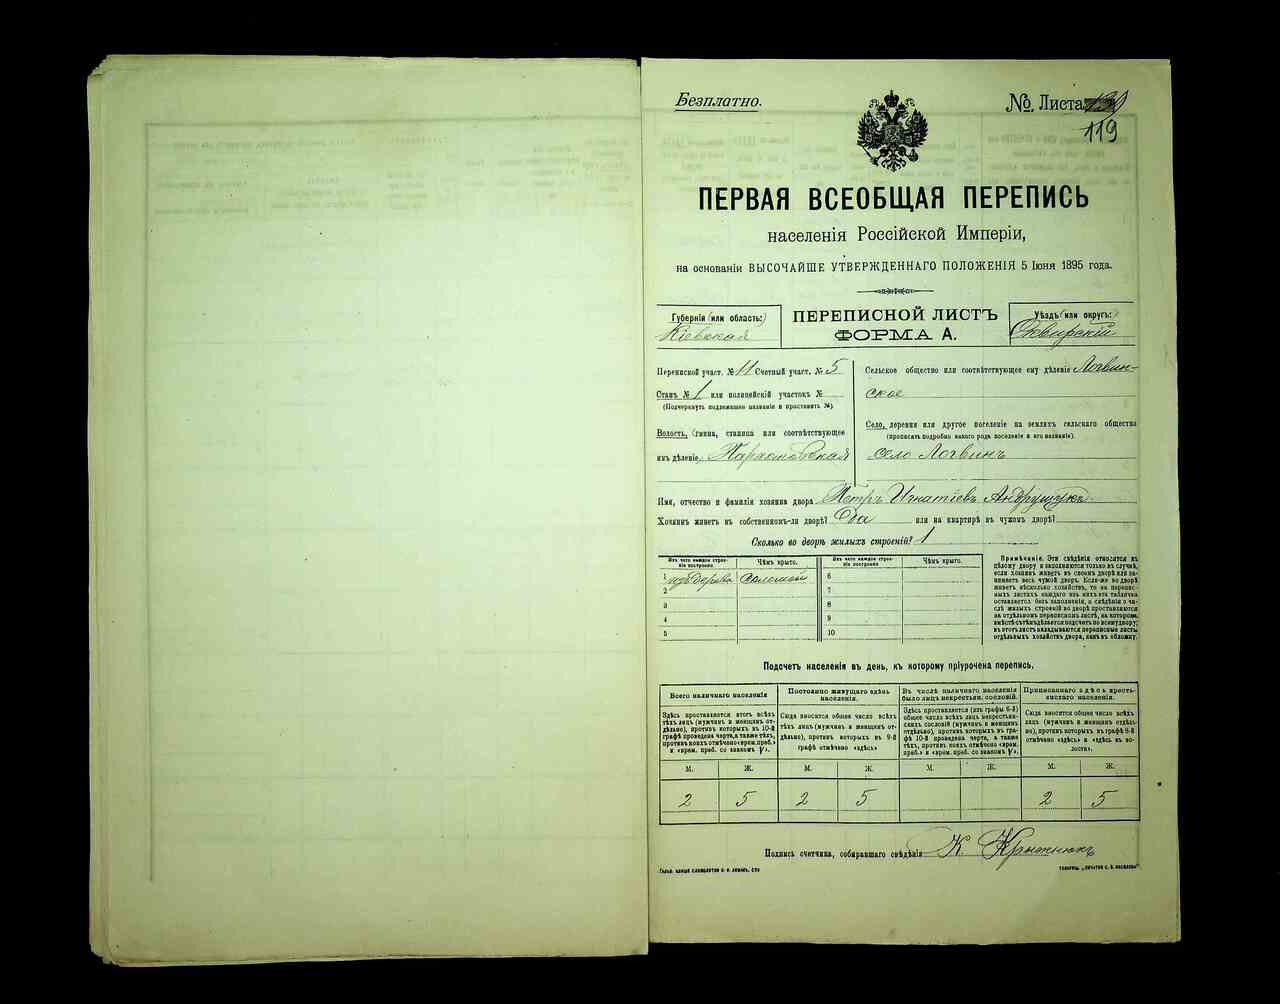 Безплатно.
№ Листа
119
ПЕРВАЯ ВСЕОБЩАЯ ПЕРЕПИСЬ
населенія Россійской Имперіи,
на основаніи ВЫСОЧАЙШЕ УТВЕРЖДЕННАГО ПОЛОЖЕНІЯ 5 Іюня 1895 года.
Губернія (или область:)
Кіевская
ПЕРЕПИСНОЙ ЛИСТЪ
ФОРМА А.
Уѣздъ (или округъ:)
Сквирскій
Переписной участ. № 11 Счетный участ. № 5
Станъ № 1 или полицейскій участокъ №
(Подчеркнуть подлежащее названіе и проставить №)
Волость, (гмина, станица или соотвѣтствующее
имъ дѣленіе) Пархомовская
Сельское общество или соотвѣтствующее ему дѣленіе Логвин-
ское
Село, деревня или другое поселеніе на земляхъ сельскаго общества
(прописать подробно какого рода поселеніе и его названіе).
село Логвинъ
Имя, отчество и фамилія хозяина двора Петръ Игнатіевъ Андрущукъ
Хозяинъ живетъ въ собственномъ-ли дворѣ? Да или на квартирѣ въ чужомъ дворѣ?
Сколько во дворѣ жилыхъ строеній? 1
Изъ чего каждое строе-
ніе построено.
Чѣмъ крыто.
Изъ чего каждое строе-
ніе построено.
Чѣмъ крыто.
1 изъ дерева соломой 6
2 7
3 8
4 9
5 10
Примѣчаніе. Эти свѣдѣнія относятся къ
цѣлому двору и заполняются только въ случаѣ,
если хозяинъ живетъ въ своемъ дворѣ или за-
нимаетъ весь чужой дворъ. Если-же во дворѣ
живетъ нѣсколько хозяйствъ, то на перепис-
ныхъ листахъ каждаго изъ нихъ эта табличка
оставляется безъ заполненія, а свѣдѣнія о чи-
слѣ жилыхъ строеній во дворѣ проставляются
на отдѣльномъ переписномъ листѣ, на которомъ
вмѣстѣ съ тѣмъ дѣлается подсчетъ по всему двору;
въ этотъ листъ вкладываются переписные листы
отдѣльныхъ хозяйствъ двора, какъ въ обложку.
Подсчетъ населенія въ день, къ которому пріурочена перепись.
Всего наличнаго населенія
Здѣсь проставляется итогъ всѣхъ
тѣхъ лицъ (мужчинъ и женщинъ от-
дѣльно), противъ которыхъ въ 10-й
графѣ проведена черта, а также тѣхъ,
противъ коихъ отмѣчено «врем. преб.»
и «врем. преб. со знакомъ V».
Постоянно живущаго здѣсь
населенія.
Сюда вносится общее число всѣхъ
тѣхъ лицъ (мужчинъ и женщинъ от-
дѣльно), противъ которыхъ въ 9-й
графѣ отмѣчено «здѣсь»
Въ числѣ наличнаго населенія
было лицъ некрестьян. сословій.
Здѣсь проставляется (изъ графы 6-й)
общее число всѣхъ лицъ некрестьян-
скихъ сословій (мужчинъ и женщинъ
отдѣльно), противъ которыхъ въ гра-
фѣ 10-й проведена черта, а также
тѣхъ, противъ коихъ отмѣчено «врем.
преб.» и «врем. преб. со знакомъ V».
Приписаннаго здѣсь кресть-
янскаго населенія.
Сюда вносится общее число всѣхъ
лицъ (мужчинъ и женщинъ отдѣль-
но), противъ которыхъ въ графѣ 8-й
отмѣчено «здѣсь» и «здѣсь въ во-
лости».
М. Ж. М. Ж. М. Ж. М. Ж.
2 5 2 5 2 5
Подпись счетчика, собиравшаго свѣдѣнія К.